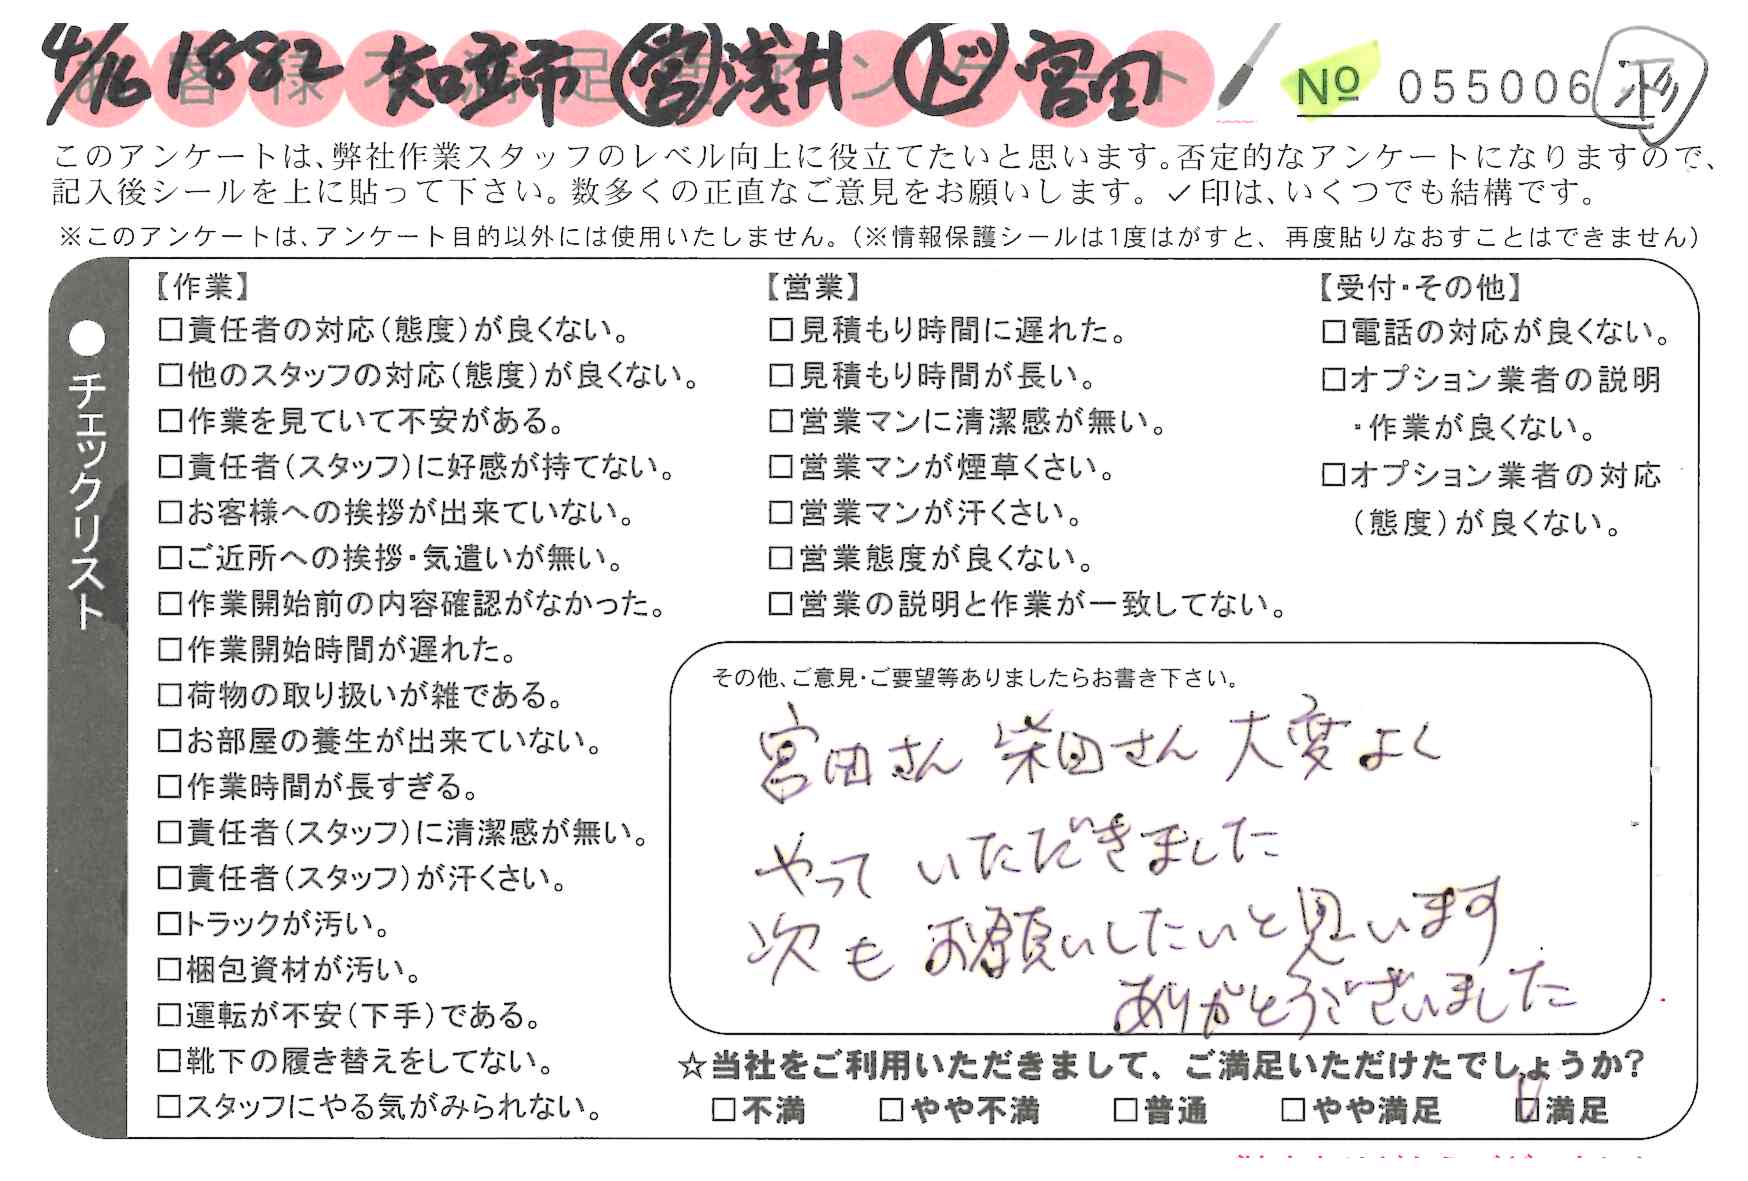 お客様不満足度アンケート
4/16 1882 知立市 宮 浅井 ド 宮田
№ 055006
このアンケートは、弊社作業スタッフのレベル向上に役立てたいと思います。否定的なアンケートになりますので、
記入後シールを上に貼って下さい。数多くの正直なご意見をお願いします。✓印は、いくつでも結構です。
※このアンケートは、アンケート目的以外には使用いたしません。(※情報保護シールは1度はがすと、再度貼りなおすことはできません)
●チェックリスト
【作業】
□責任者の対応(態度)が良くない。
□他のスタッフの対応(態度)が良くない。
□作業を見ていて不安がある。
□責任者(スタッフ)に好感が持てない。
□お客様への挨拶が出来ていない。
□ご近所への挨拶・気遣いが無い。
□作業開始前の内容確認がなかった。
□作業開始時間が遅れた。
□荷物の取り扱いが雑である。
□お部屋の養生が出来ていない。
□作業時間が長すぎる。
□責任者(スタッフ)に清潔感が無い。
□責任者(スタッフ)が汗くさい。
□トラックが汚い。
□梱包資材が汚い。
□運転が不安(下手)である。
□靴下の履き替えをしてない。
□スタッフにやる気がみられない。
【営業】
□見積もり時間に遅れた。
□見積もり時間が長い。
□営業マンに清潔感が無い。
□営業マンが煙草くさい。
□営業マンが汗くさい。
□営業態度が良くない。
□営業の説明と作業が一致してない。
【受付・その他】
□電話の対応が良くない。
□オプション業者の説明
・作業が良くない。
□オプション業者の対応
(態度)が良くない。
その他、ご意見・ご要望等ありましたらお書き下さい。
宮田さん 柴田さん 大変よく
やって いただきました
次も お願いしたいと思います
ありがとうございました
☆当社をご利用いただきまして、ご満足いただけたでしょうか?
□不満 □やや不満 □普通 □やや満足 ☑満足